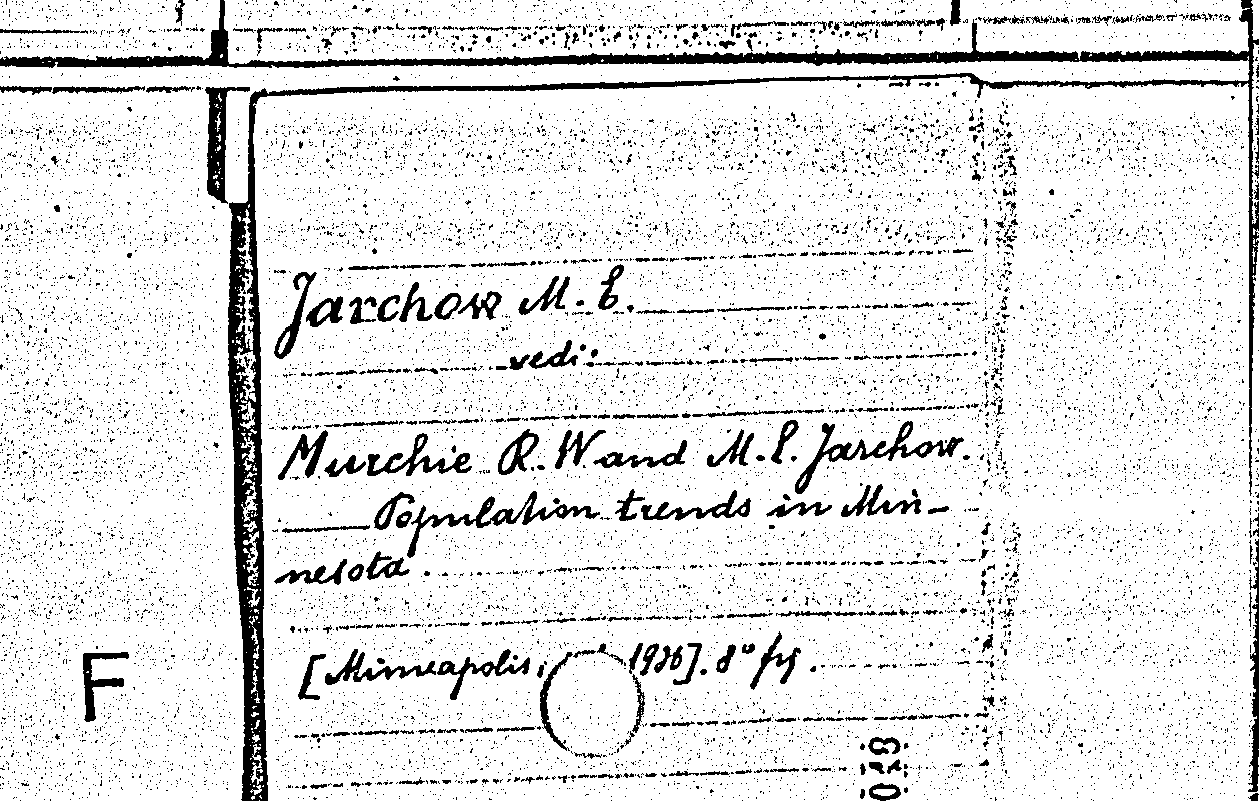 Jarchow M. E.
vedi:
Murchie R. W and M. E. Jarchow.
Population trends in Min-
nesota.
[Minneapolis, 1936]. 8° fig.
F